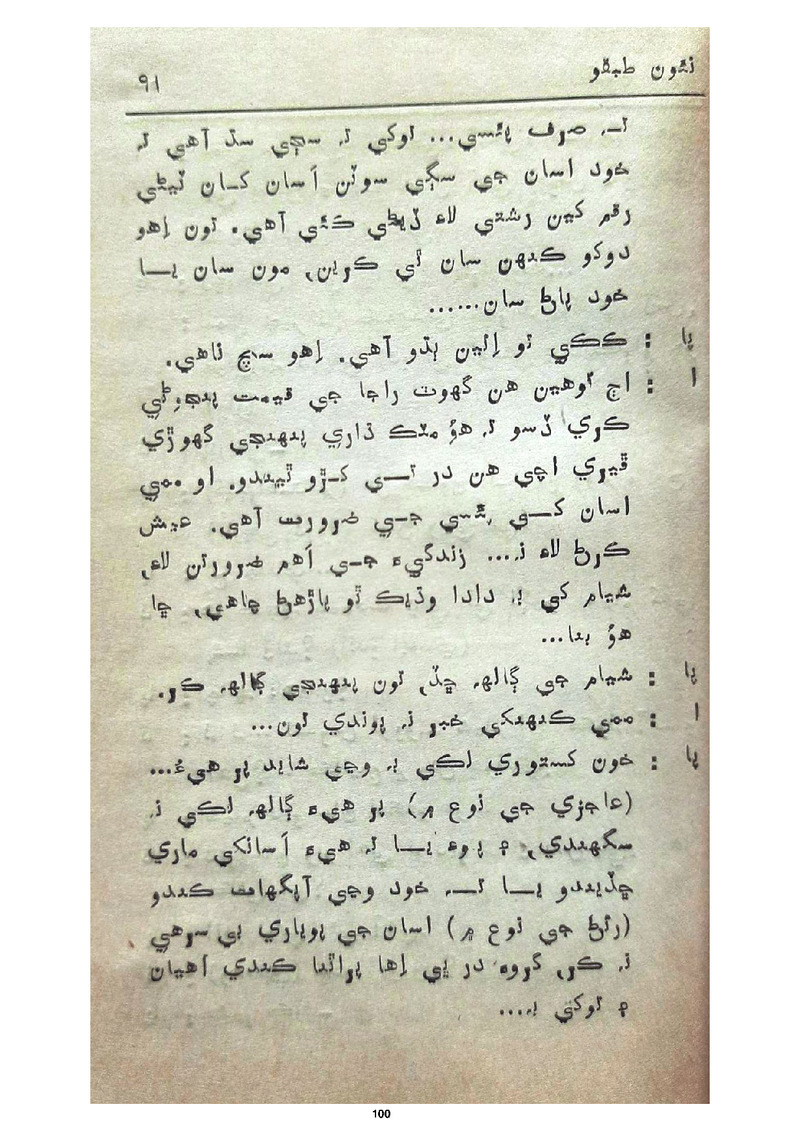 نئون طبقو
٩١
تـ۔ صرف پئسي... توکي تہ سڄي سڌ آهي تہ
خود اسان جي سڳي سوٽن اَسان کـان ٽيڻي
رقم کين رشتي لاءِ ڏيڻي ڪئي آهي. تون اِهو
دوکو ڪنهن سان ٿي ڪرين، مون سان يــا
خود پاڻ سان......
پا : ڪڪي تو اِئين ٻڌو آهي. اِهو سچ ناهي.
ا : اڄ توهين هن گهوٽ راجا جي قيمت پنجوڻي
ڪري ڏسو تہ هوُ مٽڪ ڌاري پنهنجي گهوڙي
ڦيري اچي هن در تــي کـڙو ٿيندو. او ممي
اسان کــي پئسي جـي ضرورت آهي. عيش
ڪرڻ لاءِ نہ... زندگيءَ جـي اَهم ضرورتن لاءِ،
شيام کي بہ دادا وڌيڪ ٿو پاڙهڻ چاهي، ڇا
هوُ بنا...
پا : شيام جي ڳالهہ ڇڏ، تون پنهنجي ڳالهہ ڪر.
ا : ممي ڪنهنکي خبر نہ پوندي تون...
پا : خون کستوري لڪي بہ وڃي شايد پر هيءُ...
(عاجزي جي نوع ۾) پر هيءَ ڳالهہ لڪي نہ
سگهندي، ۽ پوءِ يــا تہ هيءَ اَسانکي ماري
ڇڏيندو يــا تــہ خود وڃي آپگهات ڪندو
(رئڻ جي نوع ۾) اسان جي پوپاري بي سرهي
نہ ڪر، گروهہ در ڀي اِها پراٿنا ڪندي آهيان
۽ توکي بہ...
100